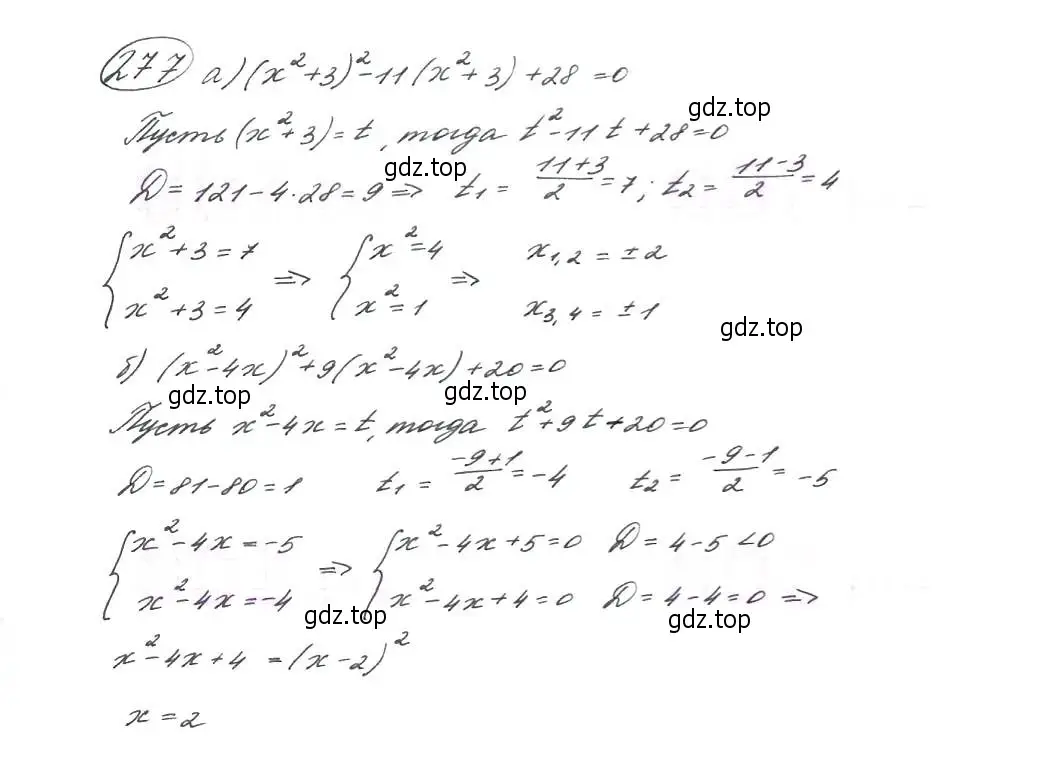 277 а) (x²+3)²-11(x²+3)+28=0
gdz.top
Пусть (x²+3)=t, тогда t²-11t+28=0
gdz.top
D=121-4·28=9 => t₁ = (11+3)/2 = 7; t₂ = (11-3)/2 = 4
{ x²+3=7 => { x²=4 => x₁,₂ = ±2
x²+3=4 x²=1 x₃,₄ = ±1
gdz.top
б) (x²-4x)²+9(x²-4x)+20=0
gdz.top gdz.top
Пусть x²-4x=t, тогда t²+9t+20=0
D=81-80=1 t₁ = (-9+1)/2 = -4 t₂ = (-9-1)/2 = -5
{ x²-4x=-5 => { x²-4x+5=0 D=4-5<0
x²-4x=-4 x²-4x+4=0 D=4-4=0 =>
gdz.top gdz.top
x²-4x+4 =(x-2)²
x=2